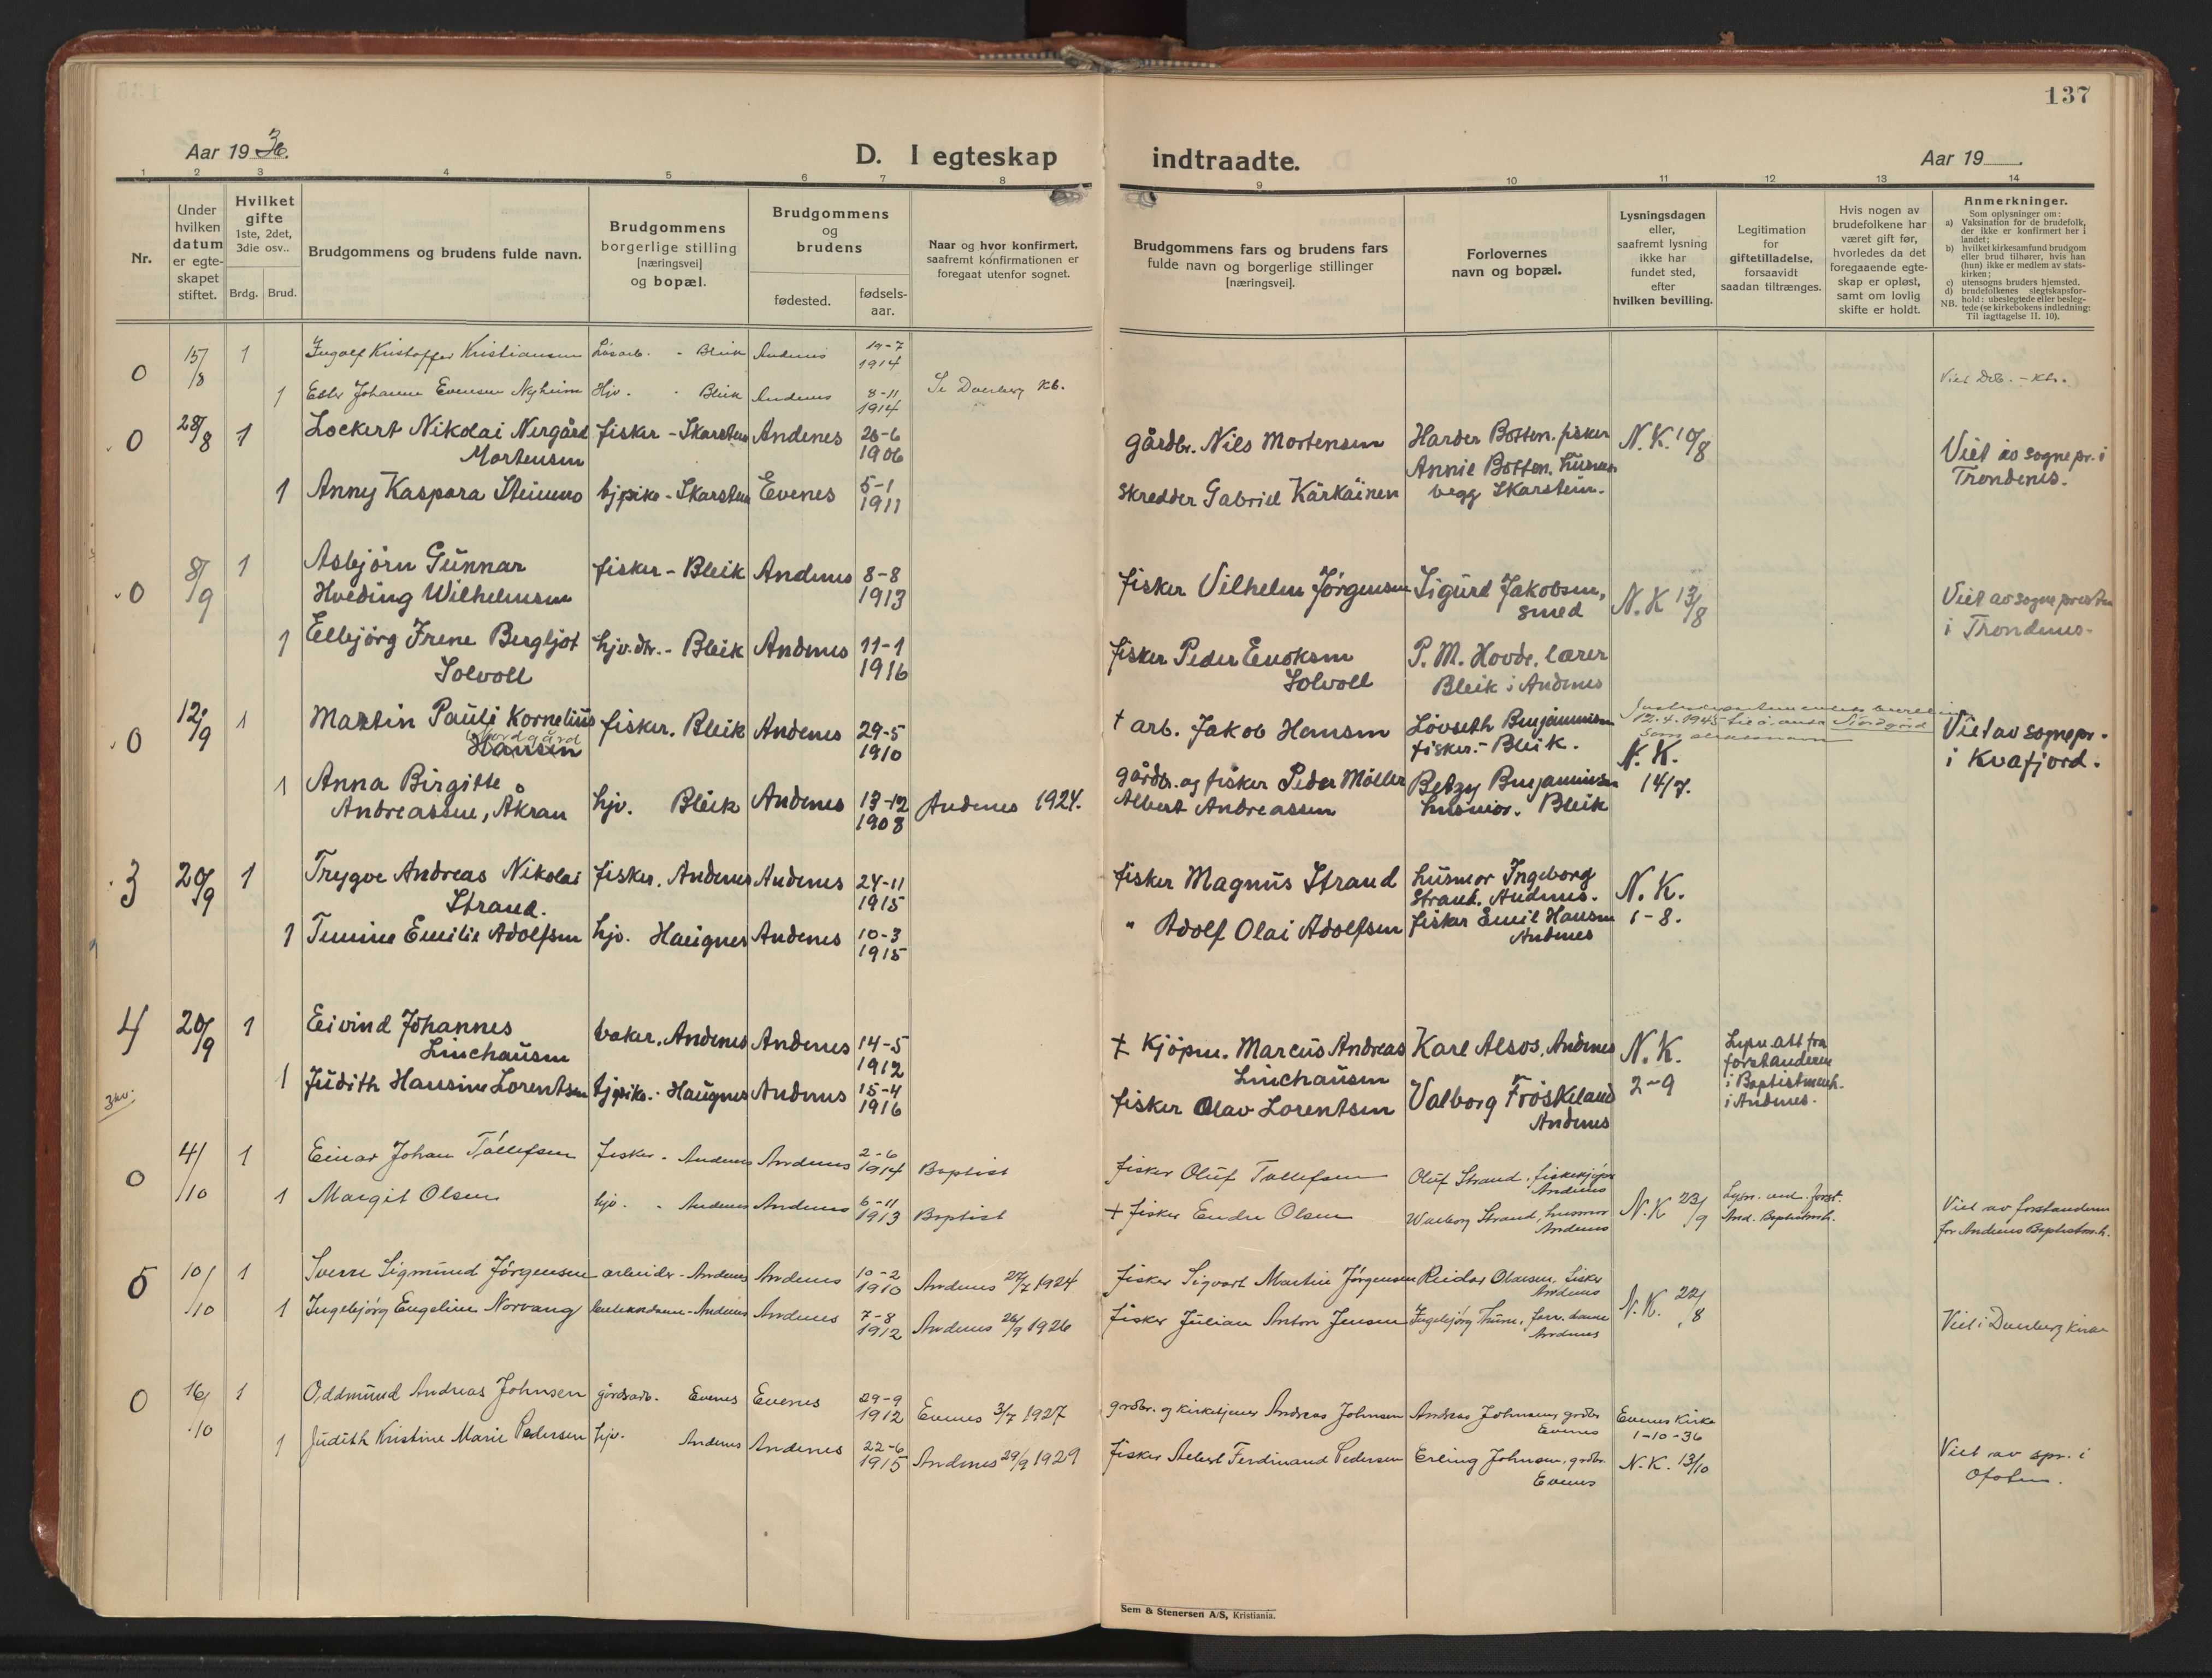 137
Aar 19 36.
D. I egteskap
indtraadte.
Aar 19
1 2 3 4 5 6 7 8 9 10 11 12 13 14
Nr.
Under
hvilken
datum
er egte-
skapet
stiftet.
Hvilket
gifte
1ste, 2det,
3die osv..
Brdg. Brud.
Brudgommens og brudens fulde navn.
Brudgommens
borgerlige stilling
[næringsvei]
og bopæl.
Brudgommens
og
brudens
fødested.
fødsels-
aar.
Naar og hvor konfirmert,
saafremt konfirmationen er
foregaat utenfor sognet.
Brudgommens fars og brudens fars
fulde navn og borgerlige stillinger
[næringsvei].
Forlovernes
navn og bopæl.
Lysningsdagen
eller,
saafremt lysning
ikke har
fundet sted,
efter
hvilken bevilling.
Legitimation
for
giftetilladelse,
forsaavidt
saadan tiltrænges.
Hvis nogen av
brudefolkene har
været gift før,
hvorledes da det
foregaaende egte-
skap er opløst,
samt om lovlig
skifte er holdt.
Anmerkninger.
Som oplysninger om:
a) Vaksination for de brudefolk,
der ikke er konfirmert her i
landet;
b) hvilket kirkesamfund brudgom
eller brud tilhører, hvis han
(hun) ikke er medlem av stats-
kirken;
c) utensogns bruders hjemsted.
d) brudefolkenes slegtskapsfor-
NB. hold: ubeslegtede eller besleg-
tede (se kirkebokens indledning:
Til iagttagelse II. 10).
0 15/8 1 Ingolf Kristoffer Kristiansen Løsarb. - Bleik Andenes 1914
1 Johanne Evensen Nyheim Hjv. - Bleik Andenes 8-11 1914 Se Dverberg Kb.
0 28/8 1 Lockert Nikolai Nergård fisker - Skarstein Andenes 26-6 1906 gårdbr. Nils Mortensen Harder Botten. fisker N.K. 10/8 Viet av sognepr. i
Mortensen Annie Botten. husmor Trondenes.
1 Anny Kaspara Steinmo tjpike - Skarstein Evenes 5-1 1911 skredder Gabriel Kärkäinen begg Skarstein.
0 8/9 1 Asbjörn Gunnar fisker - Bleik Andenes 8-8 1913 fisker Vilhelm Jörgensen Sigurd Jakobsen, N.K 13/8 Viet av sognepresten
Hveding Wilhelmsen smed i Trondenes.
1 Ellbjörg Irene Bergljot hjv.dtr. - Bleik Andenes 11-1 1916 fisker Peder Enoksen P. M. Hovde, lærer
Solvoll Solvoll Bleik i Andenes
0 12/9 1 Martin Pauli Kornelius fisker. Bleik Andenes 29-5 1910 † arb. Jakob Hansen Lövseth Benjaminsen 12.4.1945 Nordgård Viet av sognepr.
Nordgård
Hansen fisker. - Bleik. N.K. i Kvæfjord.
1 Anna Birgitte hjv. Bleik Andenes 13-12 1908 Andenes 1924. gårdbr. og fisker Peder Möller Betzy Benjaminsen 14/7.
Andreassen, Åkran Albert Andreassen husmor. Bleik
3 20/9 1 Trygve Andreas Nikolai fisker. Andenes Andenes 24-11 1915 fisker Magnus Strand husmor Ingeborg N.K.
Strand. Strand. Andenes.
1 Emilie Adolfsen hjv. Haugnes Andenes 10-3 1915 " Adolf Olai Adolfsen fisker Emil Hansen 1-8.
Andenes
4 20/9 1 Eivind Johannes baker. Andenes Andenes 14-5 1912 † Kjöpm. Marcus Andreas Karl Alsos, Andenes N.K. Lysn.att fra
Linchausen Linchausen forstanderen
1 Judith Hansine Lorentsen tjpike. Haugnes Andenes 15-4 1916 fisker Olav Lorentsen Valborg Fröskeland 2-9 i Baptistmenh.
Andenes i Andenes.
0 4/10 1 Einar Johan Tollefsen fisker - Andenes Andenes 2-6 1914 Baptist fisker Oluf Tollefsen Oluf Strand, fiskekjöper
Andenes
1 Margit Olsen hjv. - Andenes Andenes 6-11 1913 Baptist † fisker Endre Olsen Walborg Strand, husmor N.K 23/9 Lysn. ved forst. Viet av forstanderen
Andenes And. Baptistmh. for Andenes Baptistm.h.
5 10/10 1 Sverre Sigmund Jörgensen arbeider - Andenes Andenes 10-2 1910 Andenes 27/7 1924 fisker Sigvart Martin Jörgensen Reidar Olausen, fisker N.K. 22/8
Andenes
1 Ingebjörg Engeline Norvang - Andenes Andenes 7-8 1912 Andenes 26/9 1926 fisker Julian Anton Jensen Ingebjörg Thune, forr. dame Viet i Dverberg kirke
Andenes
0 16/10 1 Oddmund Andreas Johnsen gårdsarb. Evenes Evenes 29-9 1912 Evenes 3/7 1927 grdbr. og kirketjener Andreas Johnsen Andreas Johnsen, grdbr Evenes Kirke
Evenes 1-10-36
1 Judith Kristine Marie Pedersen hjv. Andenes Andenes 22-6 1915 Andenes 29/9 1929 fisker Albert Ferdinand Pedersen Erling Johnsen, grdbr. N.K. 13/10 Viet av spr. i
Evenes Ofoten.
Sem & Stenersen A/S, Kristiania.